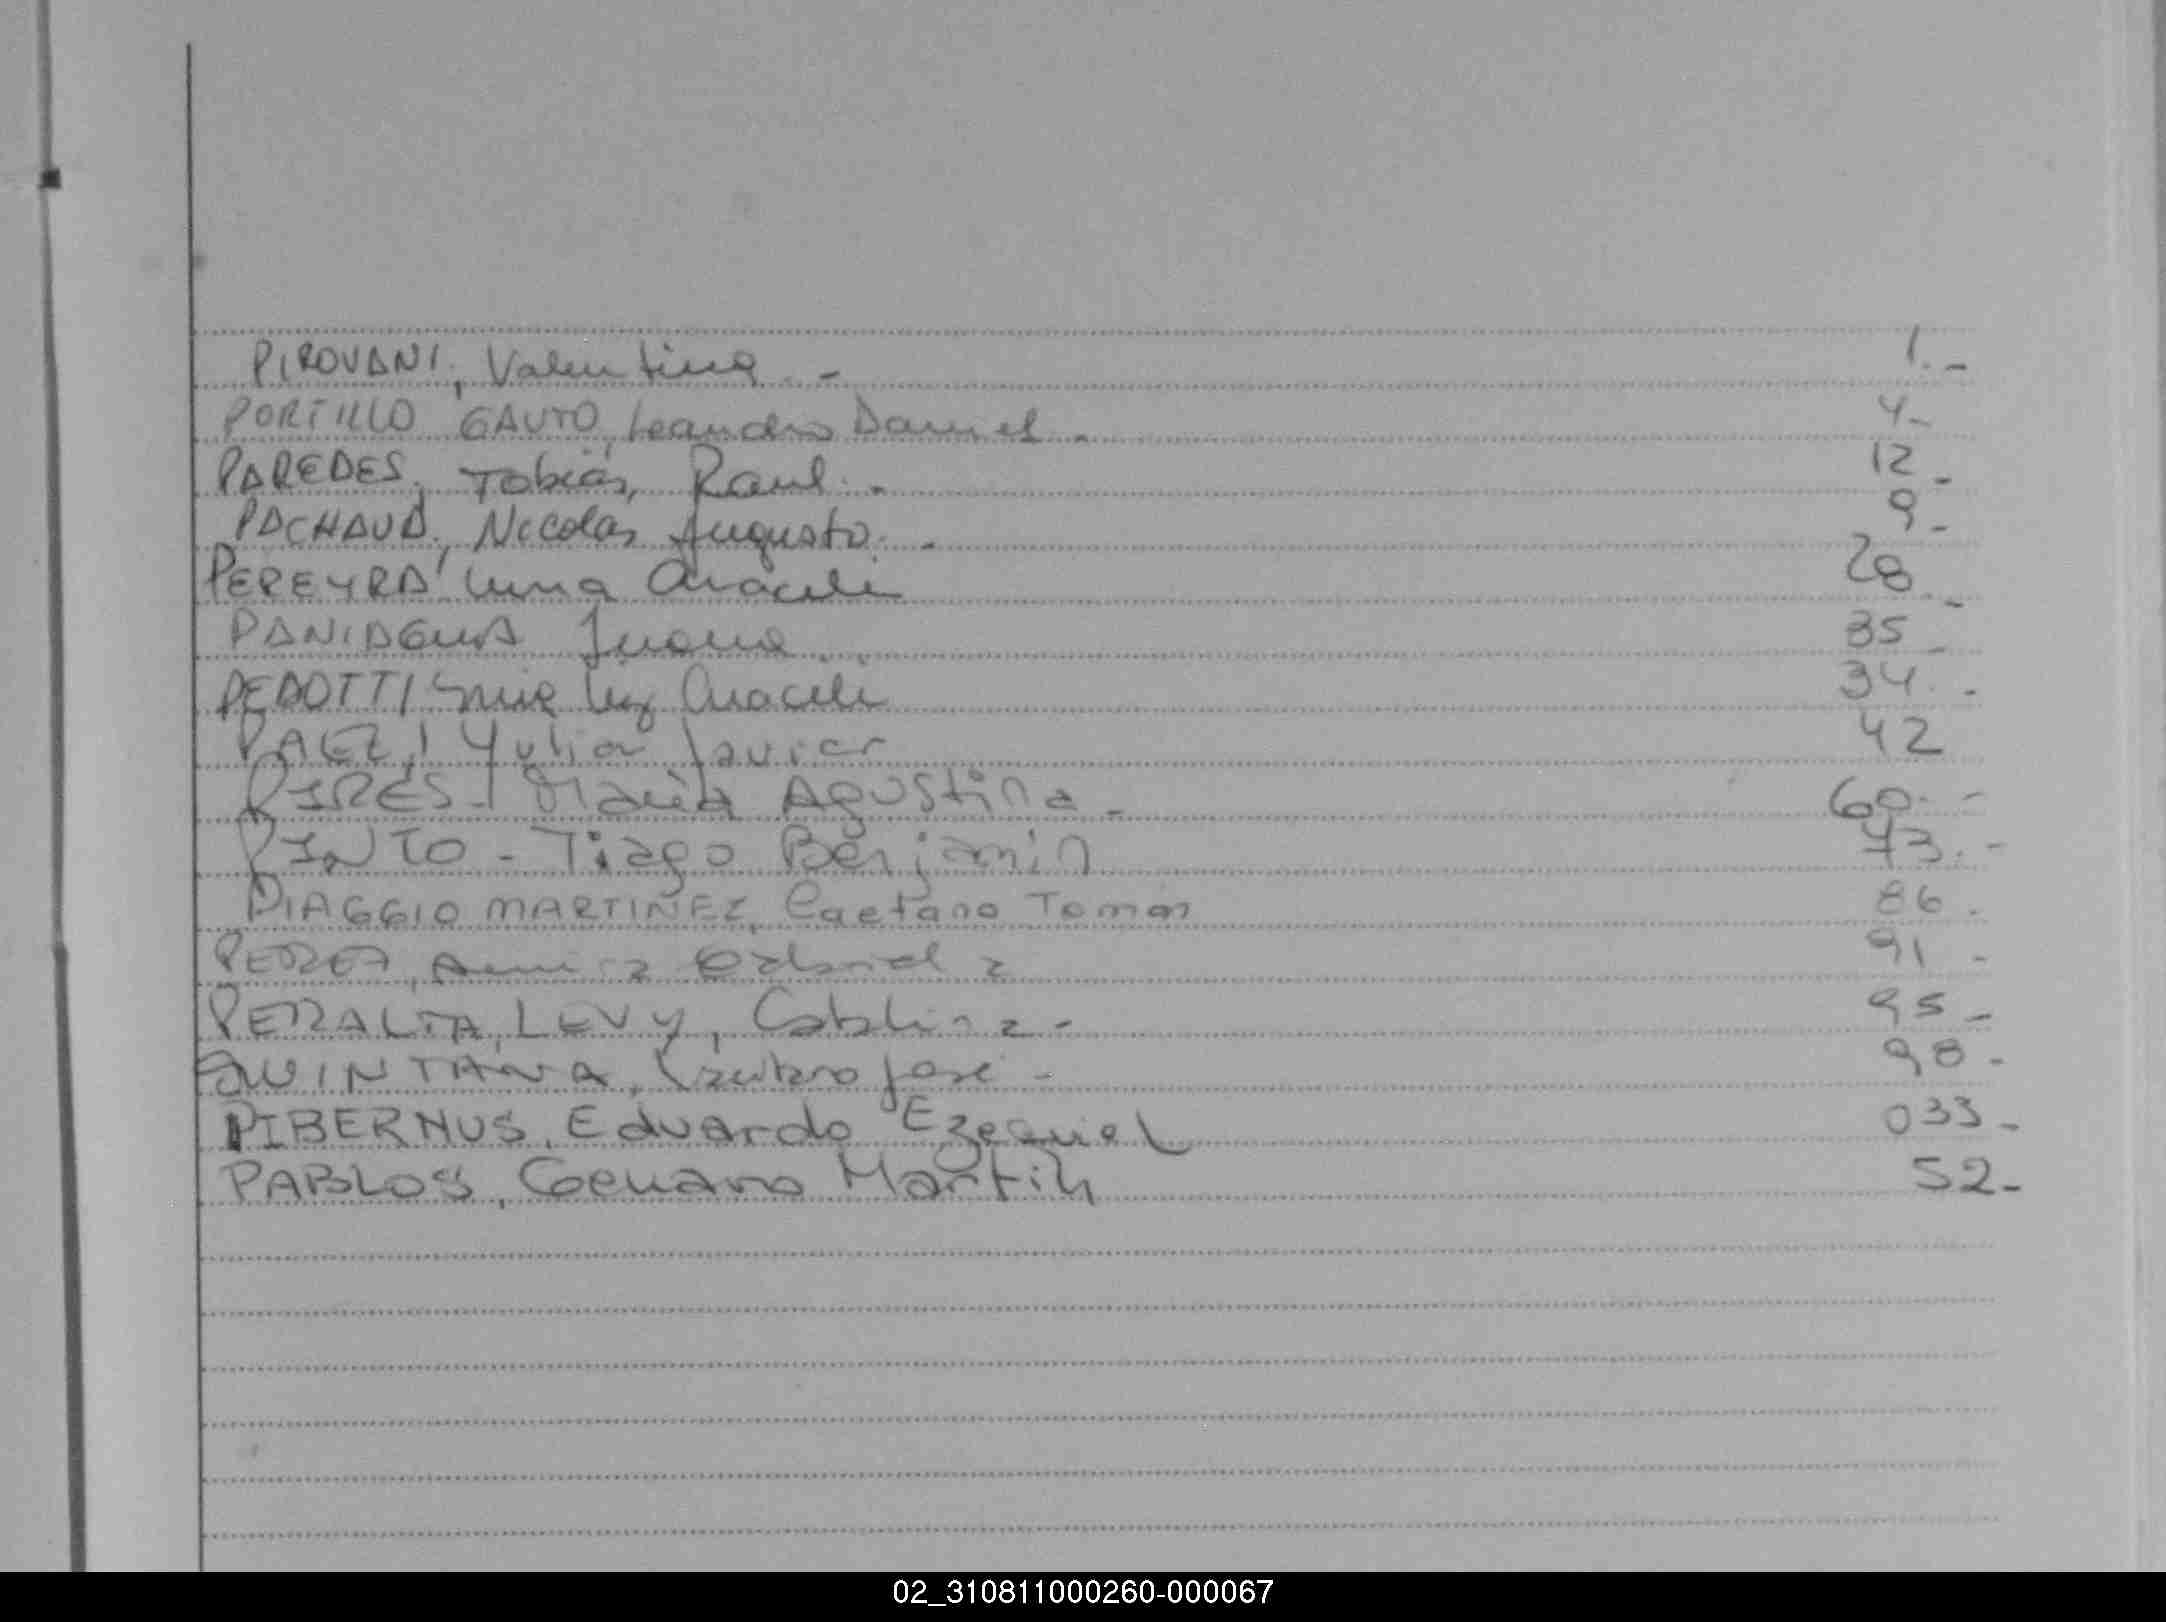 PIROVANI, Valentina.- 1.-
PORTILLO GAUTO, Leandro Daniel.- 4-
PAREDES, Tobías, Raul.- 12-
PACHAUD, Nicolás Augusto.- 9-
PEREYRA, Luna Araceli 28-
PANIAGUA Juana.. 35-
PEDOTTI Luz Araceli 34.-
PAEZ, Yulian Javier 42
PIRES - María Agustina - 60.-
PINTO - Tiago Benjamin 73.-
PIAGGIO MARTINEZ, Caetano Tomas 86.
PEREZ, Gabriela 91-
PERALTA, LEVY, Catalina- 95-
QUINTANA, Lautaro José- 98-
PIBERNUS, Eduardo Ezequiel 033-
PABLOS, Genaro Martín 52-
02_310811000260-000067